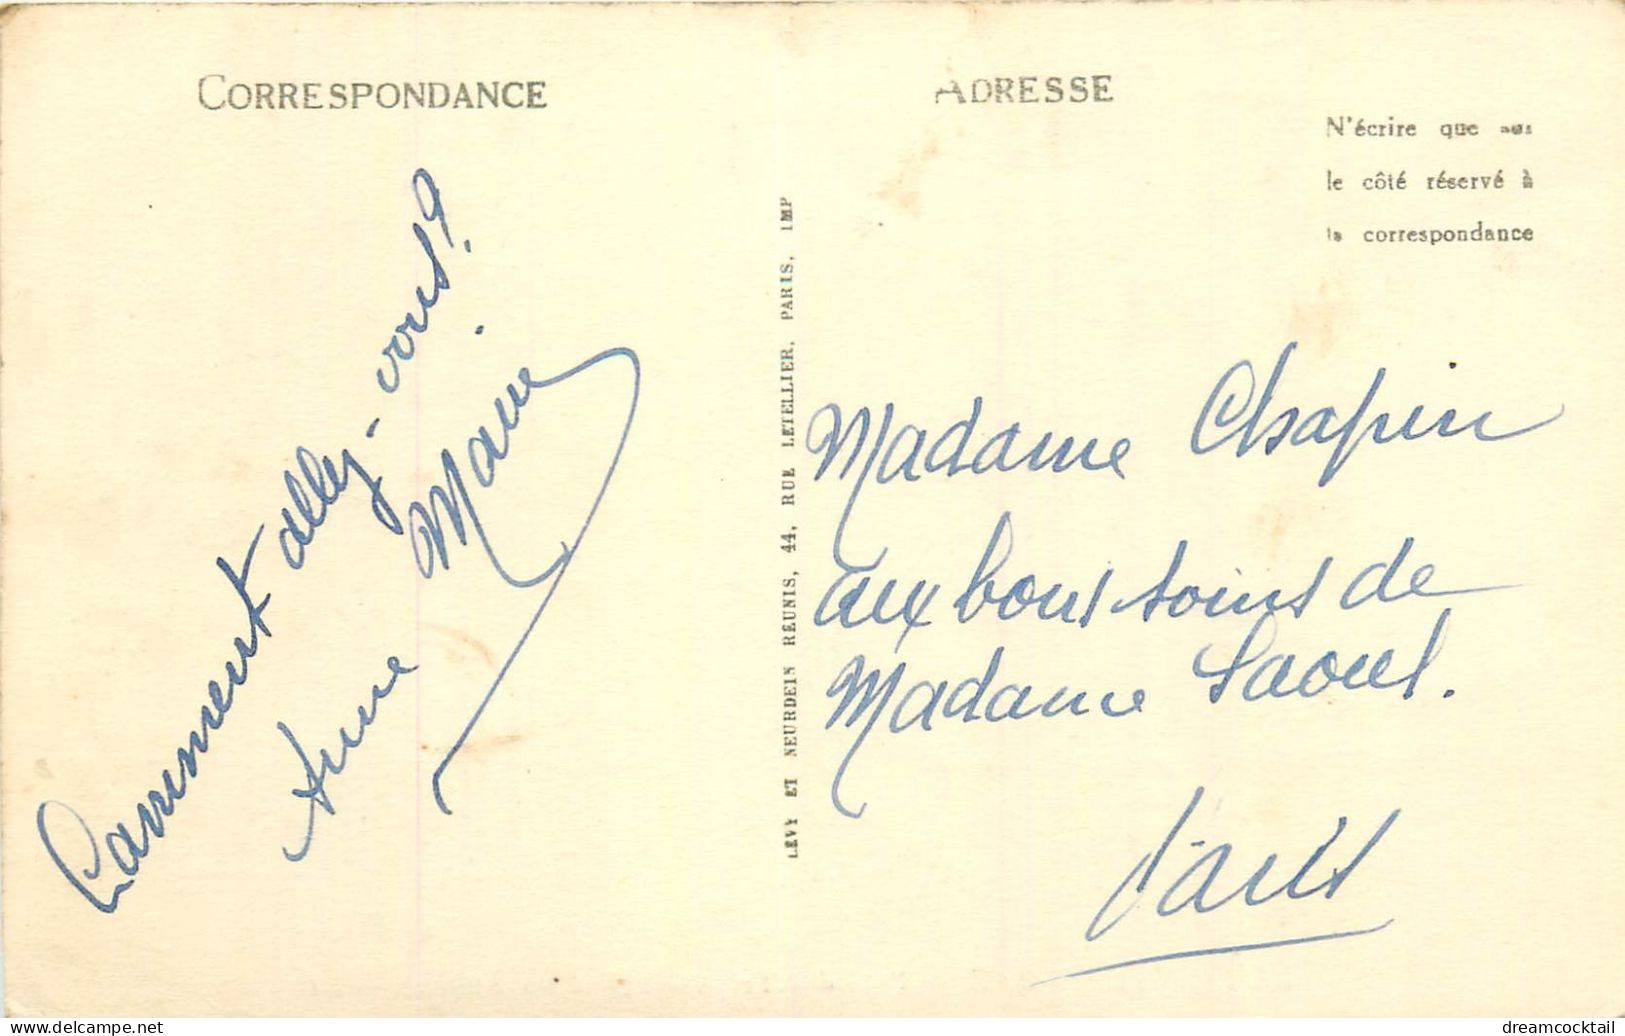 CORRESPONDANCE
Comment allez-vous?
Anne Marie
LEVY ET NEURDEIN RÉUNIS, 44, RUE LETELLIER, PARIS, IMP
ADRESSE
N'écrire que sur
le côté réservé à
la correspondance
Madame Chapin
aux bons soins de
Madame Saoul.
Paris
www.delcampe.net
dreamcocktail